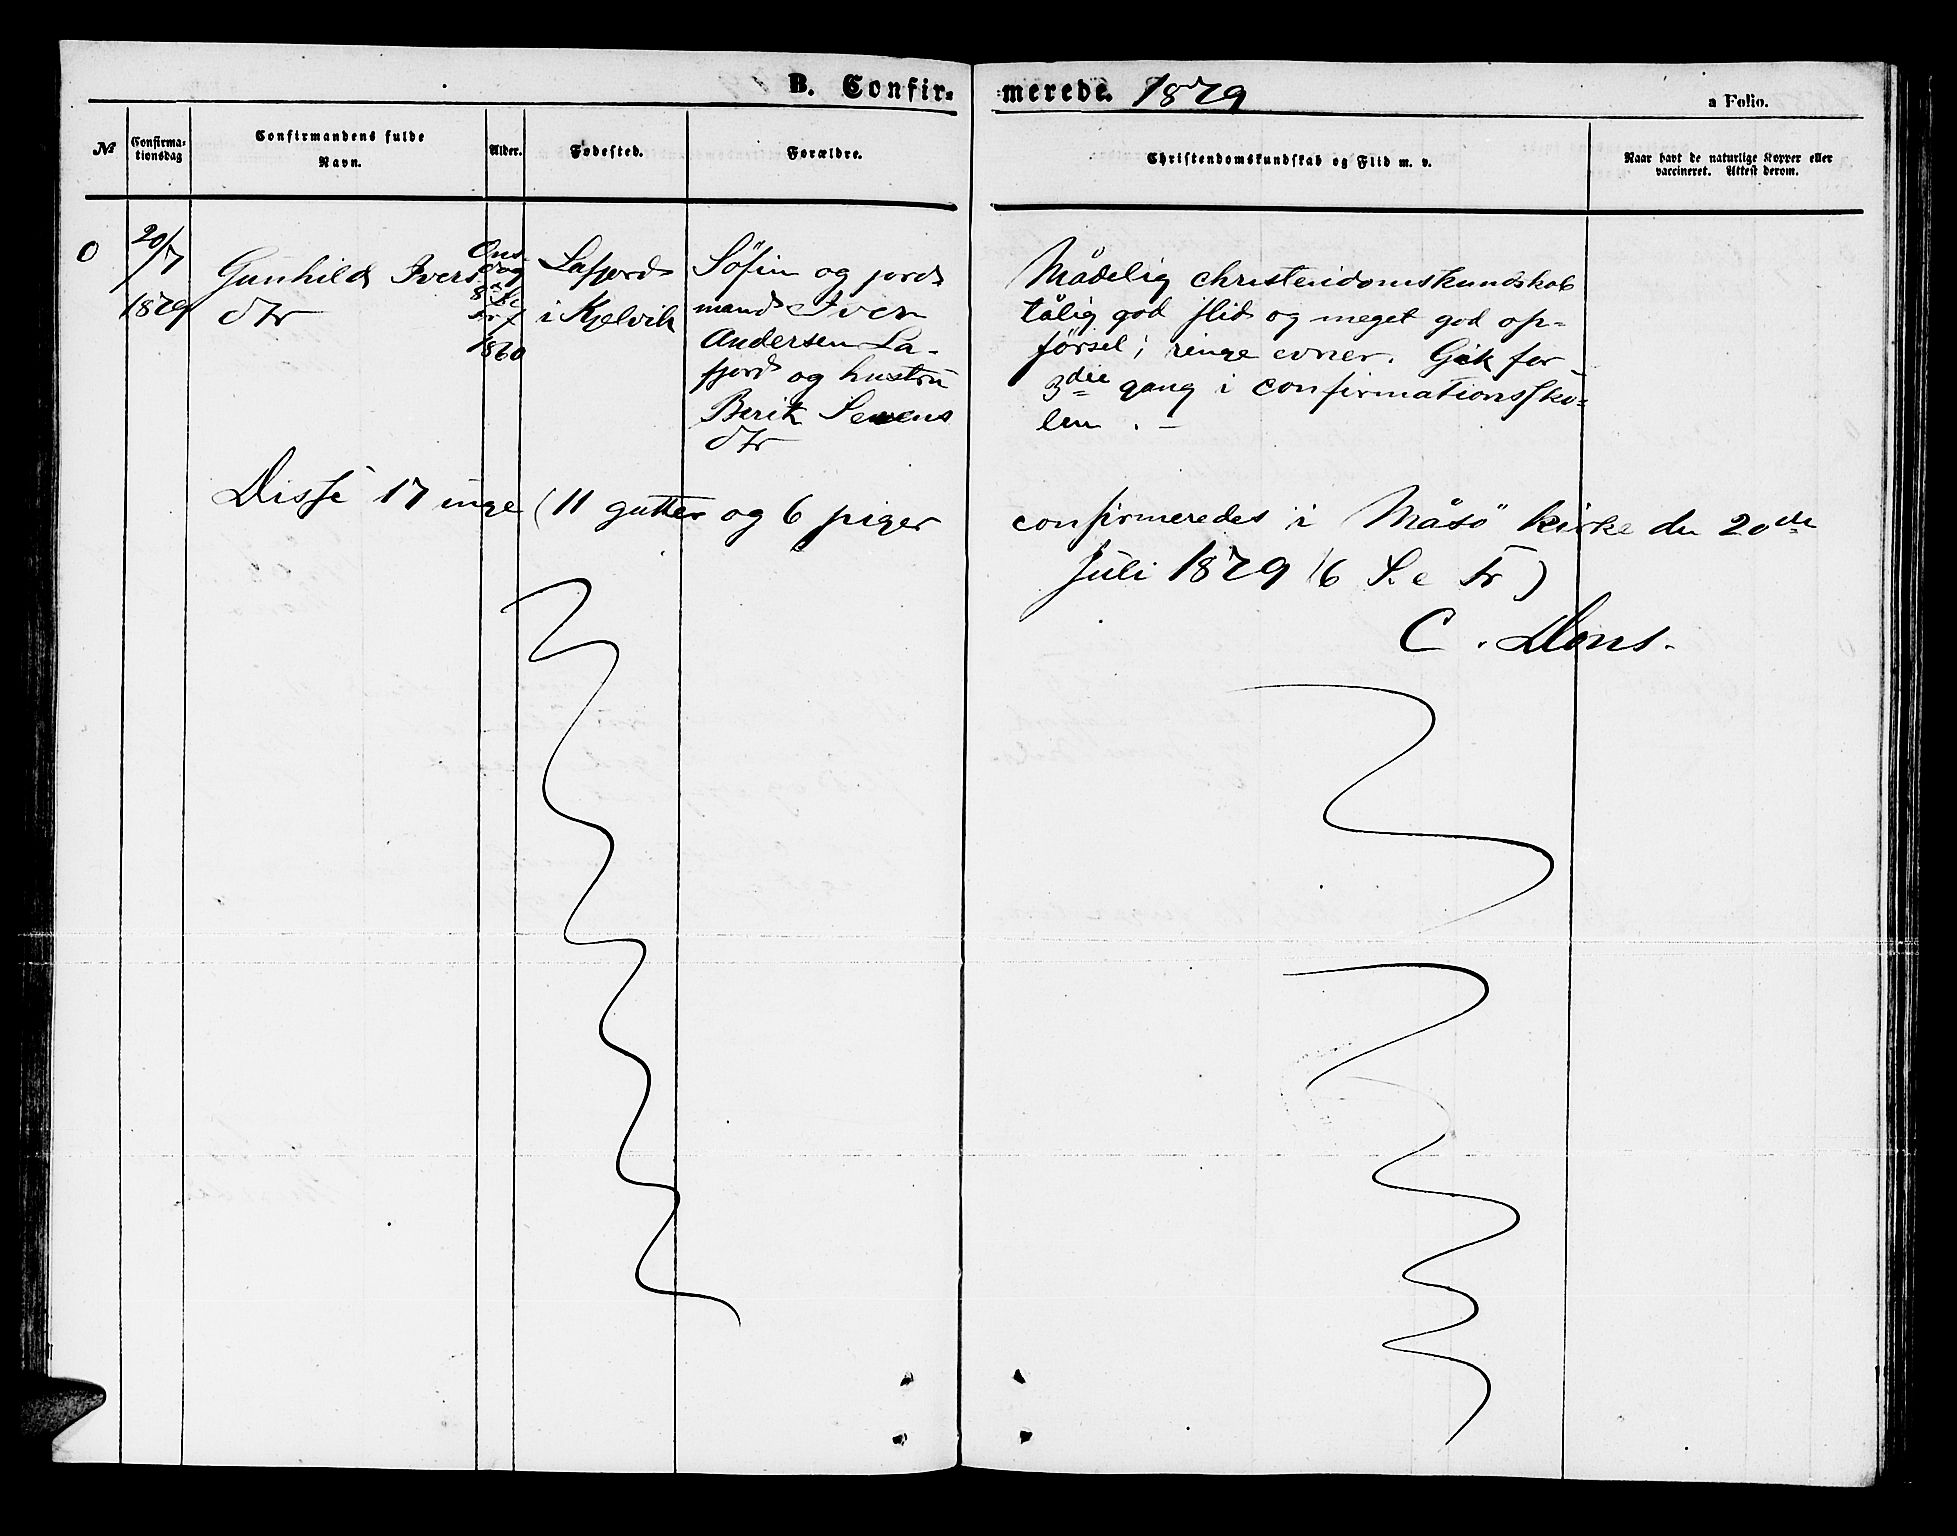 B. Confir-
merede. 1879
a Folio.
№
Confirma-
tionsdag
Confirmandens fulde
Navn.
Alder.
Fødested.
Forældre.
Christendomskundskab og Flid m. v.
Naar havt de naturlige Kopper eller
vaccineret. Attest derom.
0
20/7
1879
Gunhild Ivers
dtr
Ons-
dag
8 S. e
Tr.
1860
Lafjord
i Kjelvik
Söfin og jord
mand Iver
Andersen La-
fjord og hustru
Berit
dtr
Mådelig christendomskundskab
tålig god flid og meget god op-
försel; ringe evner. Gik for
3die gang i confirmationssko-
len . -
Disse 17 unge (11 gutter og 6 piger
confirmeredes i Måsö kirke den 20de
Juli 1879 (6 S. e Tr)
C. Dons.